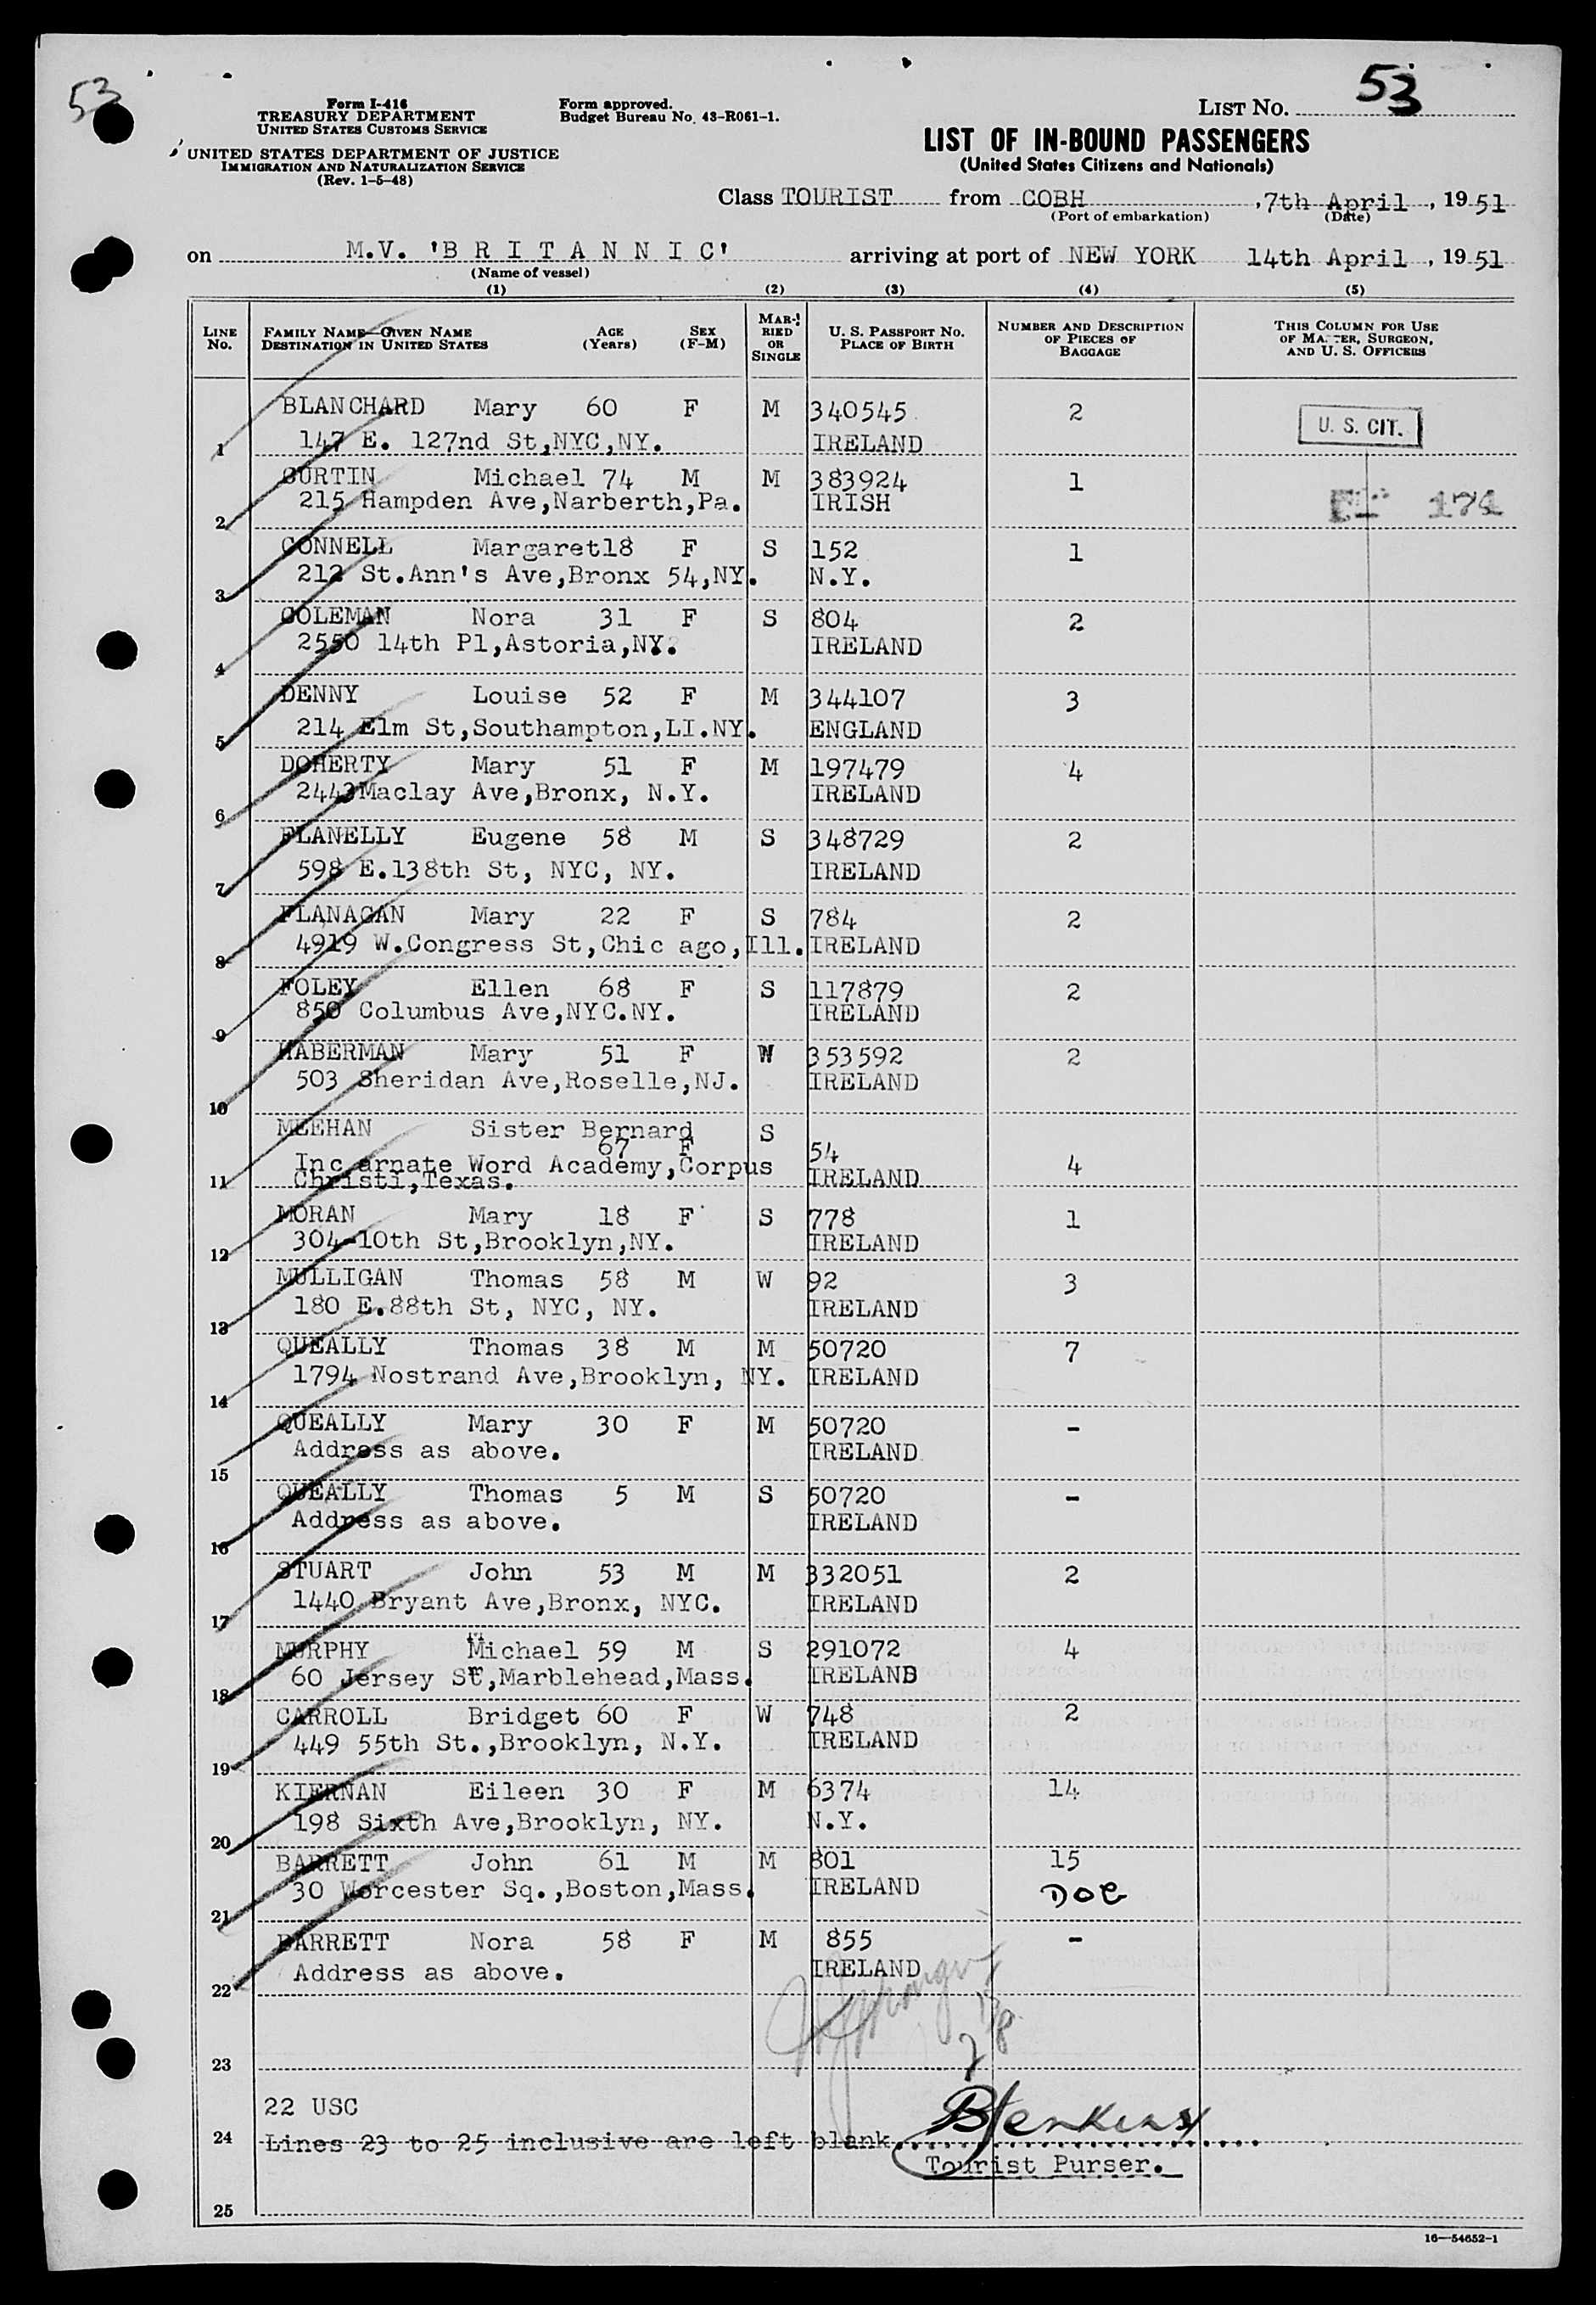 53
53
Form I-416
TREASURY DEPARTMENT
UNITED STATES CUSTOMS SERVICE
Form approved.
Budget Bureau No. 43-R061-1.
LIST NO.
UNITED STATES DEPARTMENT OF JUSTICE
IMMIGRATION AND NATURALIZATION SERVICE
(Rev. 1-5-48)
LIST OF IN-BOUND PASSENGERS
(United States Citizens and Nationals)
Class TOURIST from COBH, 7th April, 1951
(Port of embarkation) (Date)
on M.V. 'B R I T A N N I C' arriving at port of NEW YORK 14th April, 1951
(Name of vessel)
(1) (2) (3) (4) (5)
LINE No. FAMILY NAME—GIVEN NAME DESTINATION IN UNITED STATES AGE (Years) SEX (F-M) MARRIED OR SINGLE U. S. PASSPORT No. PLACE OF BIRTH NUMBER AND DESCRIPTION OF PIECES OF BAGGAGE THIS COLUMN FOR USE OF MASTER, SURGEON, AND U. S. OFFICERS
BLANCHARD Mary 60 F M 340545 2 U. S. CIT.
1 147 E. 127nd St,NYC,NY. IRELAND
CURTIN Michael 74 M M 383924 1
2 215 Hampden Ave,Narberth,Pa. IRISH 174
CONNELL Margaret18 F S 152 1
3 212 St.Ann's Ave,Bronx 54,NY. N.Y.
COLEMAN Nora 31 F S 804 2
4 2550 14th Pl,Astoria,NY. IRELAND
DENNY Louise 52 F M 344107 3
5 214 Elm St,Southampton,LI.NY. ENGLAND
DOHERTY Mary 51 F M 197479 4
6 2443Maclay Ave,Bronx, N.Y. IRELAND
FLANELLY Eugene 58 M S 348729 2
7 598 E.138th St, NYC, NY. IRELAND
FLANAGAN Mary 22 F S 784 2
8 4919 W.Congress St,Chic ago,Ill. IRELAND
FOLEY Ellen 68 F S 117879 2
9 850 Columbus Ave,NYC.NY. IRELAND
HABERMAN Mary 51 F W 353592 2
10 503 Sheridan Ave,Roselle,NJ. IRELAND
MEEHAN Sister Bernard S
67 F 54 4
11 Inc arnate Word Academy,Corpus IRELAND
Christi,Texas.
MORAN Mary 18 F S 778 1
12 304-10th St,Brooklyn,NY. IRELAND
MULLIGAN Thomas 58 M W 92 3
13 180 E.88th St, NYC, NY. IRELAND
QUEALLY Thomas 38 M M 50720 7
14 1794 Nostrand Ave,Brooklyn, NY. IRELAND
QUEALLY Mary 30 F M 50720 -
15 Address as above. IRELAND
QUEALLY Thomas 5 M S 50720 -
16 Address as above. IRELAND
STUART John 53 M M 332051 2
17 1440 Bryant Ave,Bronx, NYC. IRELAND
MURPHY Michael 59 M S 291072 4
18 60 Jersey St,Marblehead,Mass. IRELAND
CARROLL Bridget 60 F W 748 2
19 449 55th St.,Brooklyn, N.Y. IRELAND
KIERNAN Eileen 30 F M 6374 14
20 198 Sixth Ave,Brooklyn, NY. N.Y.
BARRETT John 61 M M 801 15
21 30 Worcester Sq.,Boston,Mass. IRELAND DOG
BARRETT Nora 58 F M 855 -
22 Address as above. IRELAND
23
22 USC
24 Lines 23 to 25 inclusive are left blank. BJenkins
Tourist Purser.
25
16—54652-1